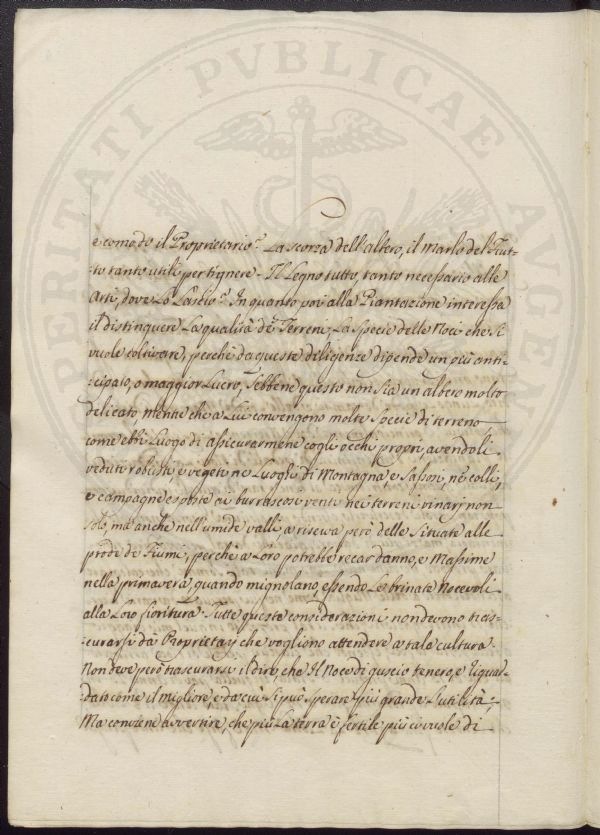 PVBLICAE
e comodo il Proprietario. La scorza dell'albero, il marlo del Frut-
to tanto utili per tignere. Il Legno tutto, tanto necessario alle
Arti, dove Lo Lascio? In quanto poi alla Piantazione interessa
il distinguere La qualità de' Terreni, La Specie delle Noci che si
vuole coltivare, perchè da queste diligenze dipende un più anti-
cipato, o maggior Lucro, sebbene questo non sia un albero molto
delicato, mentre che a Lui convengono molte Specie di terreno
come ebbi Luogo di assicurarmene cogli occhi propri, avendoli
veduti robusti, e vegeti ne' Luoghi di Montagna e Sassosi, ne' colli,
e campagne esposte ai burrascosi venti nei terreni vinarj non
solo, ma anche nell'umide valli, a riserva però delle situate alle
prode de' Fiumi, perchè a Loro potrebbe recar danno, e Massime
nella primavera, quando mignolano, essendo Le brinate Nocevoli
alla Loro fioritura. Tutte queste considerazioni non devono tras-
curarsi da' Proprietarj che vogliono attendere a tale cultura.
Non deve però trascurarsi il dire, che Il Noce di guscio tenero, è riguar-
dato come il migliore, e da cui si può sperare più grande L'utilità;
Ma conviene avvertire, che più La terra è fertile più ci vuole di